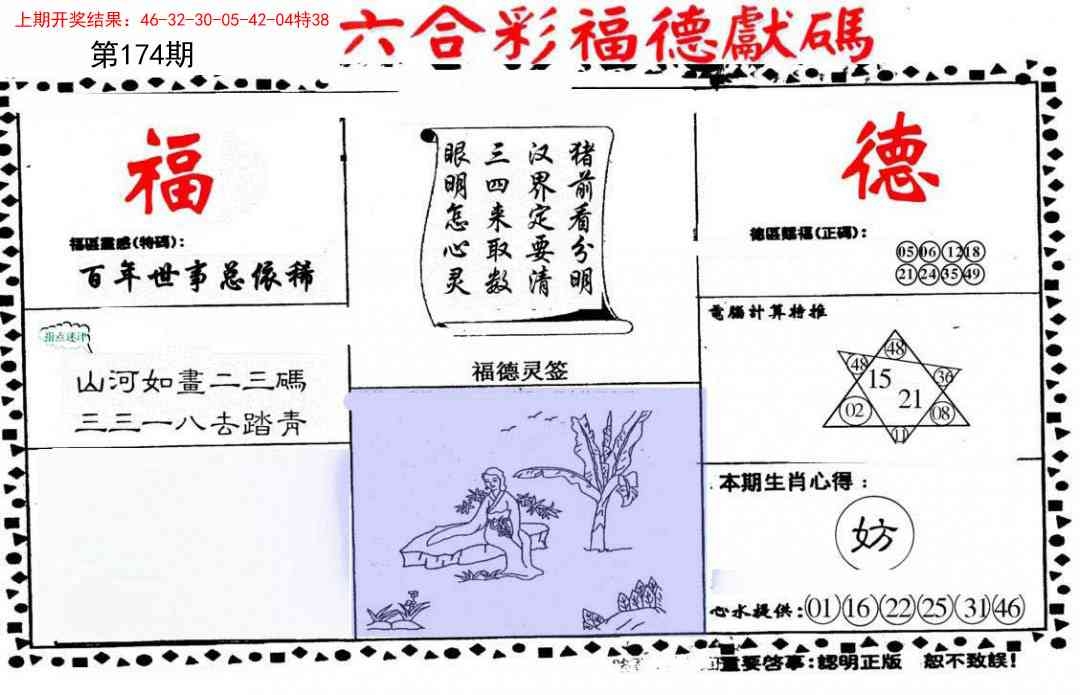 上期开奖结果：46-32-30-05-42-04特38
六合彩福德獻碼
第174期
福
福區靈感(特碼)：
百年世事总依稀
指点迷津
山河如畫二三碼
三三一八去踏青
猪前看分明
汉界定要清
三四来取数
眼明怎心灵
福德灵签
德
德區賜福(正碼)：
05 06 12 18
21 24 35 49
電腦計算特推
48
48 36
15
21
02 08
11
本期生肖心得：
妨
心水提供：01 16 22 25 31 46
重要啓事：認明正版 恕不致誤！